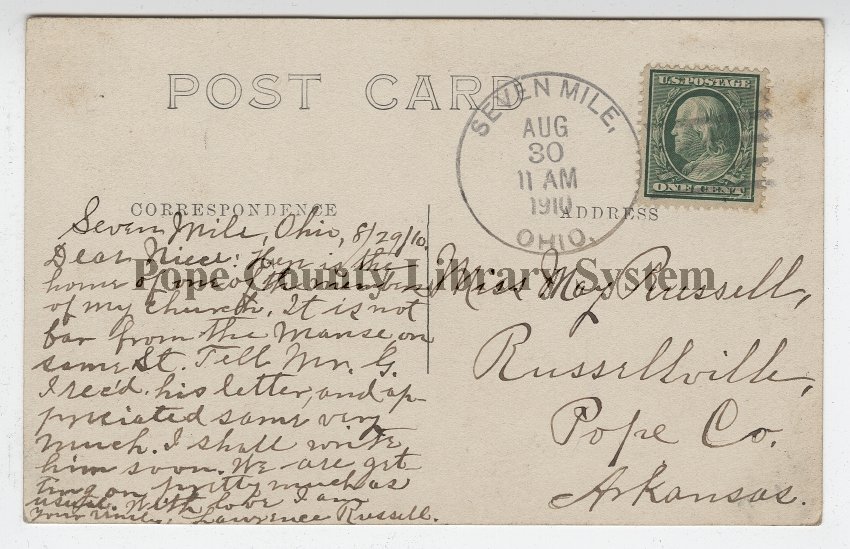 POST CARD
SEVEN MILE,
AUG
30
11 AM
1910
OHIO.
U.S. POSTAGE
ONE CENT
CORRESPONDENCE
ADDRESS
Seven Mile, Ohio, 8/29/10.
Dear Niece: Here is the
home of one of the members
of my church. It is not
far from the Manse, on
same St. Tell Mr. G.
I rec'd. his letter, and ap-
preciated same very
much. I shall write
him soon. We are get-
ting on pretty much as
usual. With love I am
Your Uncle, Lawrence Russell.
Miss May Russell,
Russellville,
Pope Co.
Arkansas.
Pope County Library System